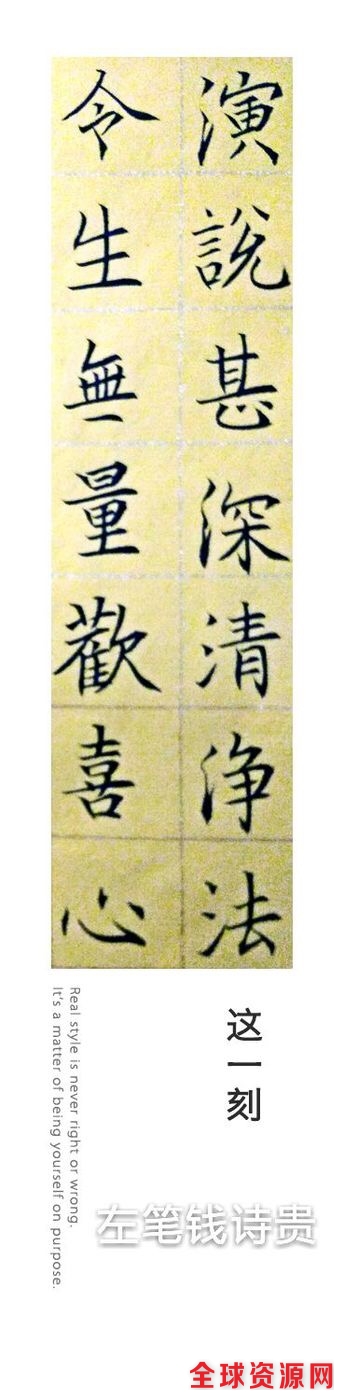 演說甚深清浄法
令生無量歡喜心
这一刻
Real style is never right or wrong.
It's a matter of being yourself on purpose.
左笔钱诗贵
全球资源网